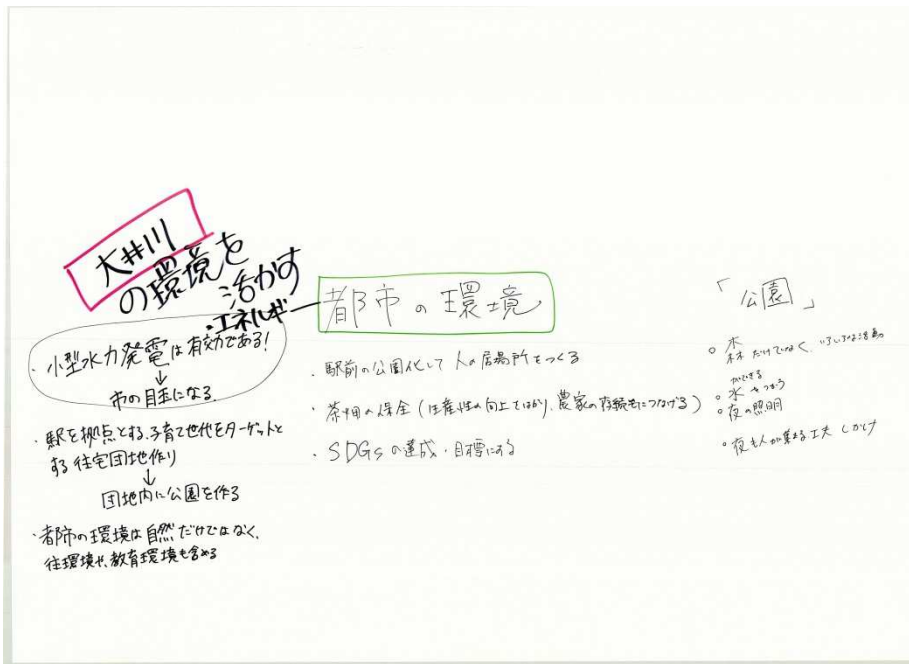 大井川
の環境を
活かす
・エネルギー
小型水力発電は有効である!
↓
市の目玉になる
・駅を拠点とする、子育て世代をターゲットと
する住宅団地作り
↓
団地内に公園を作る
・都市の環境は自然だけではなく、
住環境や、教育環境も含める
都市の環境
・駅前の公園化して人の居場所をつくる
・茶畑の保全(生産性の向上をはかり、農家の存続にもつなげる)
・SDGsの達成・目標にする
「公園」
○木
森だけでなく、いろいろな活動
ができる
○水をつかう
○夜の照明
○夜も人が集える工夫 しかけ